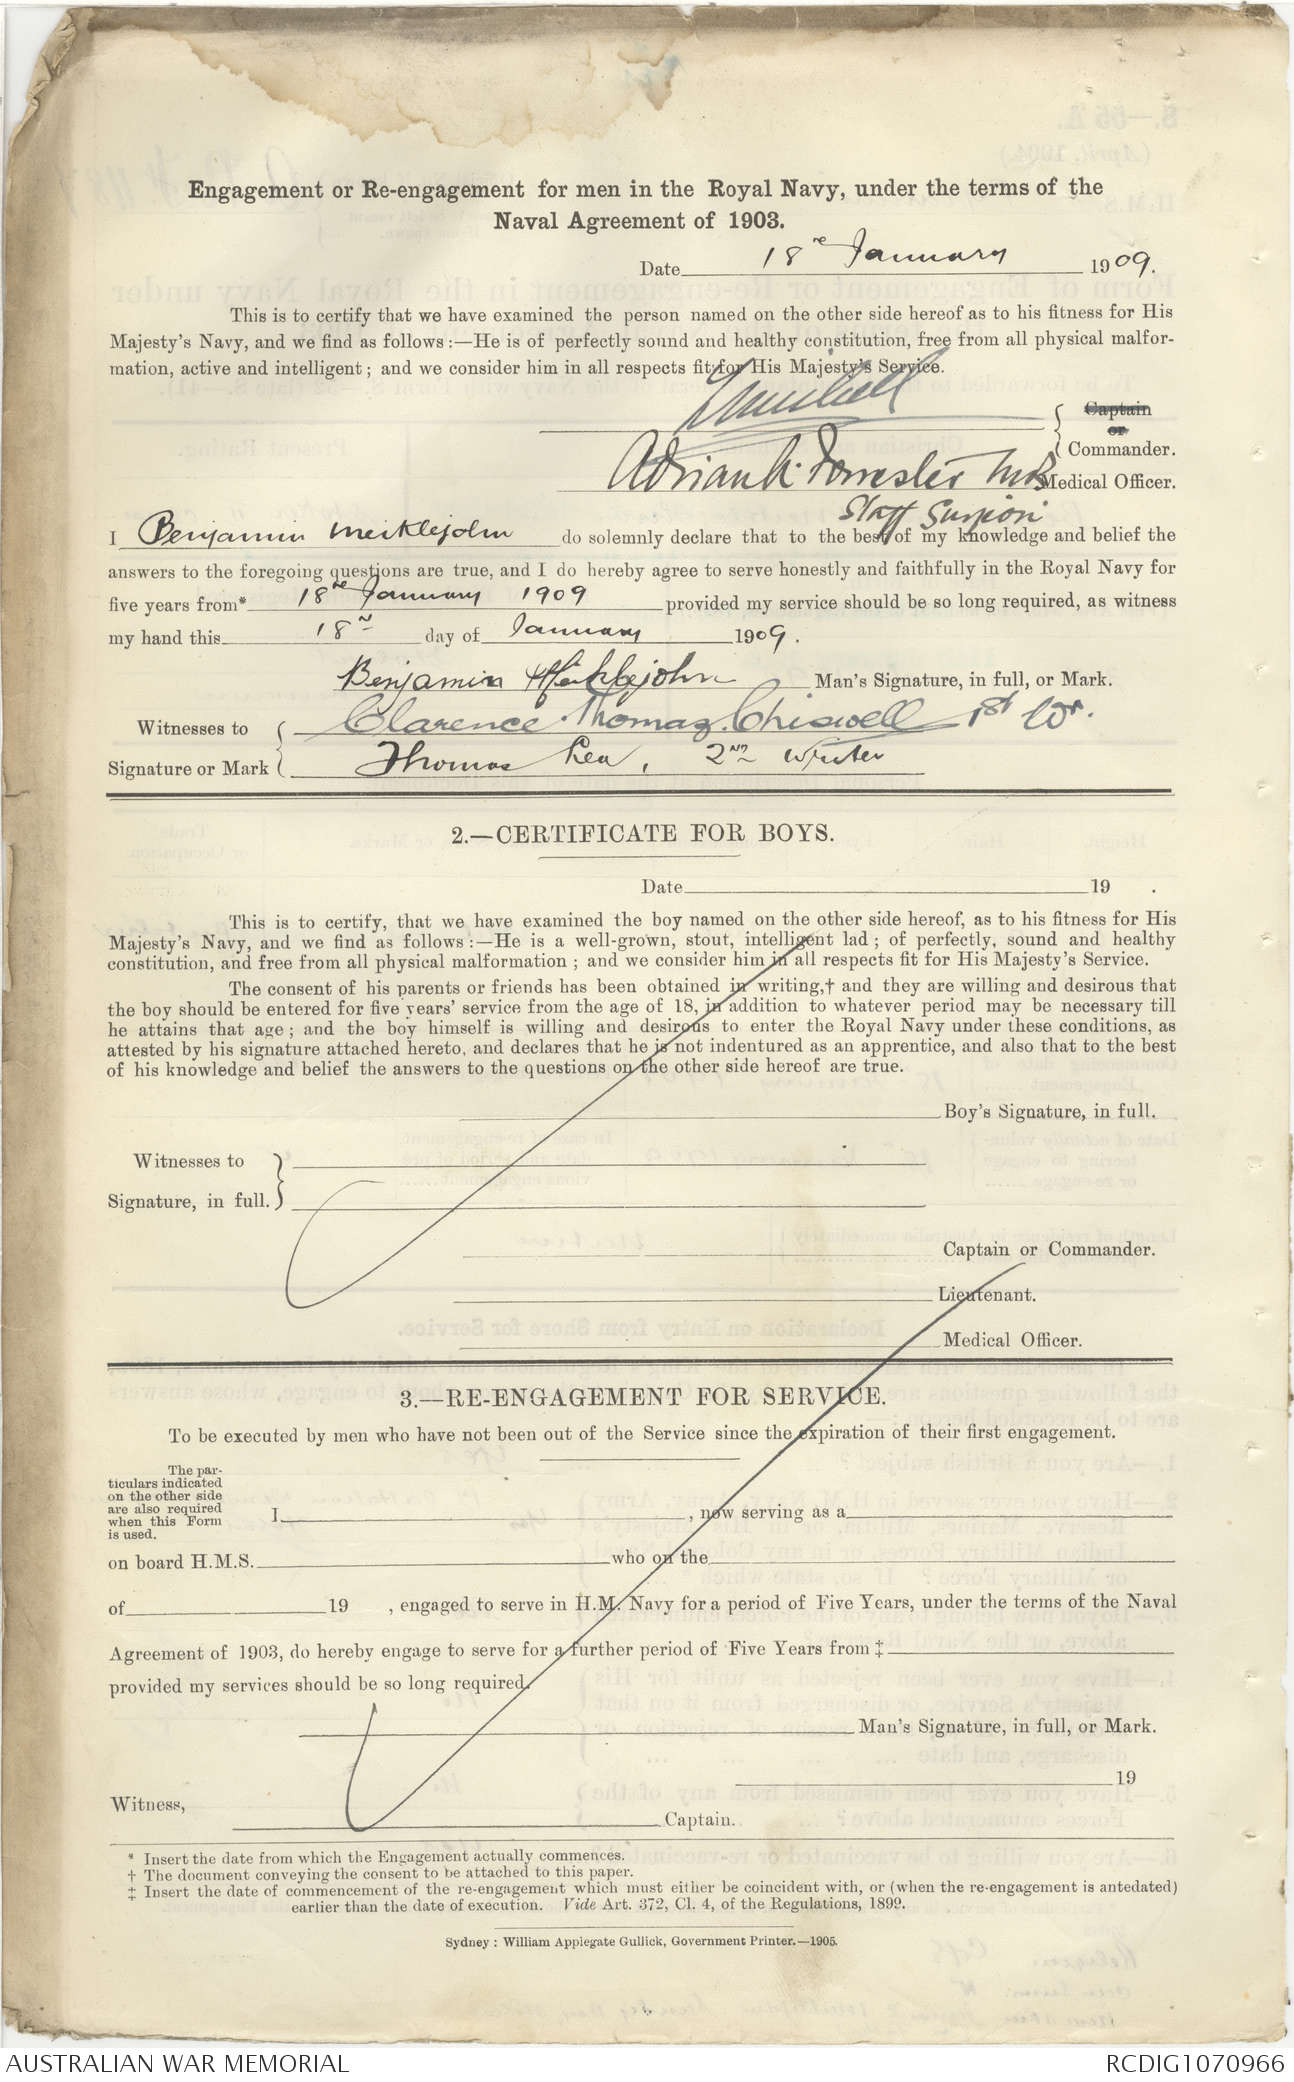 Engagement or Re-engagement for men in the Royal Navy, under the terms of the
Naval Agreement of 1903.
Date 18th January 1909.
This is to certify that we have examined the person named on the other side hereof as to his fitness for His
Majesty's Navy, and we find as follows:—He is of perfectly sound and healthy constitution, free from all physical malfor-
mation, active and intelligent; and we consider him in all respects fit for His Majesty's Service.
Captain
or
Commander.
Adrian A. Forrester MB Medical Officer.
Staff Surgeon
I Benjamin Meiklejohn do solemnly declare that to the best of my knowledge and belief the
answers to the foregoing questions are true, and I do hereby agree to serve honestly and faithfully in the Royal Navy for
five years from* 18th January 1909 provided my service should be so long required, as witness
my hand this 18th day of January 1909.
Benjamin Meiklejohn Man's Signature, in full, or Mark.
Witnesses to Clarence Thomas Chiswell 1st Wr.
Signature or Mark Thomas Lea, 2nd Writer
2.—CERTIFICATE FOR BOYS.
Date 19 .
This is to certify, that we have examined the boy named on the other side hereof, as to his fitness for His
Majesty's Navy, and we find as follows:—He is a well-grown, stout, intelligent lad; of perfectly, sound and healthy
constitution, and free from all physical malformation; and we consider him in all respects fit for His Majesty's Service.
The consent of his parents or friends has been obtained in writing,† and they are willing and desirous that
the boy should be entered for five years' service from the age of 18, in addition to whatever period may be necessary till
he attains that age; and the boy himself is willing and desirous to enter the Royal Navy under these conditions, as
attested by his signature attached hereto, and declares that he is not indentured as an apprentice, and also that to the best
of his knowledge and belief the answers to the questions on the other side hereof are true.
Boy's Signature, in full.
Witnesses to
Signature, in full.
Captain or Commander.
Lieutenant.
Medical Officer.
3.—RE-ENGAGEMENT FOR SERVICE.
To be executed by men who have not been out of the Service since the expiration of their first engagement.
The par-
ticulars indicated
on the other side
are also required
when this Form
is used.
I , now serving as a
on board H.M.S. who on the
of 19 , engaged to serve in H.M. Navy for a period of Five Years, under the terms of the Naval
Agreement of 1903, do hereby engage to serve for a further period of Five Years from ‡
provided my services should be so long required.
Man's Signature, in full, or Mark.
19
Witness,
Captain.
* Insert the date from which the Engagement actually commences.
† The document conveying the consent to be attached to this paper.
‡ Insert the date of commencement of the re-engagement which must either be coincident with, or (when the re-engagement is antedated)
earlier than the date of execution. Vide Art. 372, Cl. 4, of the Regulations, 1899.
Sydney: William Applegate Gullick, Government Printer.—1905.
AUSTRALIAN WAR MEMORIAL
RCDIG1070966